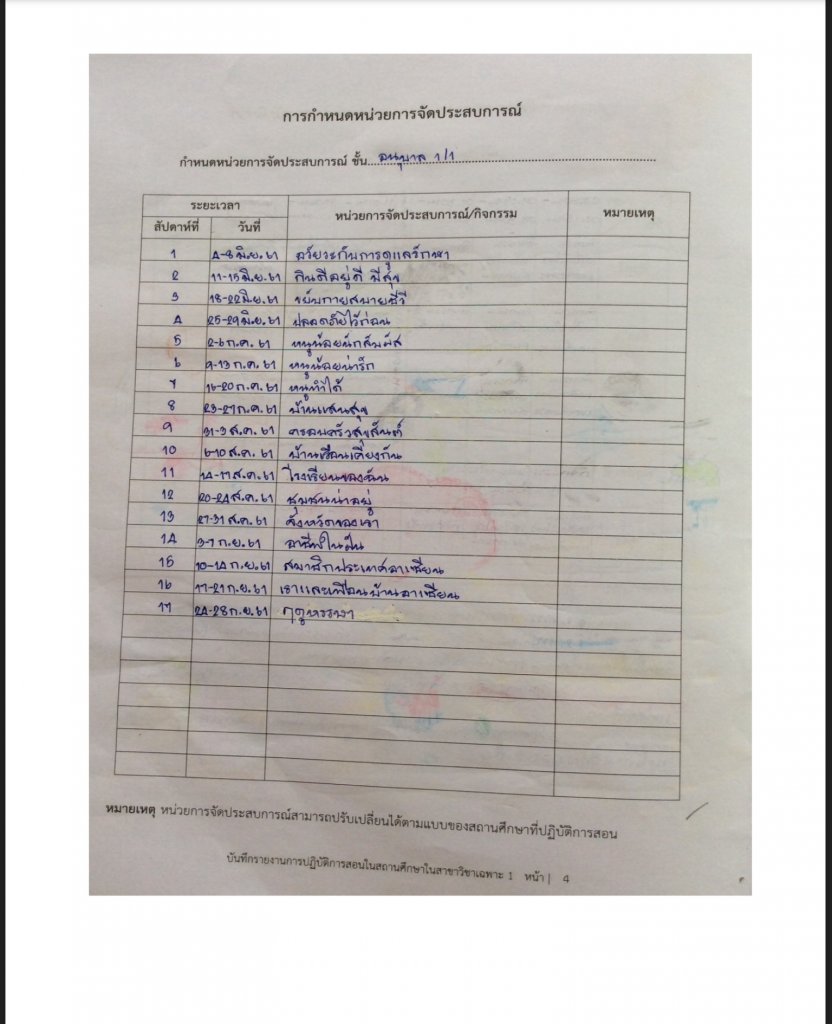 การกำหนดหน่วยการจัดประสบการณ์
กำหนดหน่วยการจัดประสบการณ์ ชั้น อนุบาล 1/1
ระยะเวลา หน่วยการจัดประสบการณ์/กิจกรรม หมายเหตุ
สัปดาห์ที่ วันที่
1 4-8 มิ.ย. 61 อวัยวะกับการดูแลรักษา
2 11-15 มิ.ย. 61 กินดีอยู่ดี มีสุข
3 18-22 มิ.ย. 61 ขยับกายสบายชีวี
4 25-29 มิ.ย. 61 ปลอดภัยไว้ก่อน
5 2-6 ก.ค. 61 หนูน้อยนักสัมผัส
6 9-13 ก.ค. 61 หนูน้อยน่ารัก
7 16-20 ก.ค. 61 หนูทำได้
8 23-27 ก.ค. 61 บ้านแสนสุข
9 31-3 ส.ค. 61 ครอบครัวสุขสันต์
10 6-10 ส.ค. 61 บ้านเรือนเคียงกัน
11 14-17 ส.ค. 61 โรงเรียนของฉัน
12 20-24 ส.ค. 61 ชุมชนน่าอยู่
13 27-31 ส.ค. 61 จังหวัดของเรา
14 3-7 ก.ย. 61 อาชีพในฝัน
15 10-14 ก.ย. 61 สมาชิกประเทศอาเซียน
16 17-21 ก.ย. 61 เราและเพื่อนบ้านอาเซียน
17 24-28 ก.ย. 61 ฤดูหรรษา
หมายเหตุ หน่วยการจัดประสบการณ์สามารถปรับเปลี่ยนได้ตามแบบของสถานศึกษาที่ปฏิบัติการสอน
บันทึกรายงานการปฏิบัติการสอนในสถานศึกษาในสาขาวิชาเฉพาะ 1 หน้า | 4